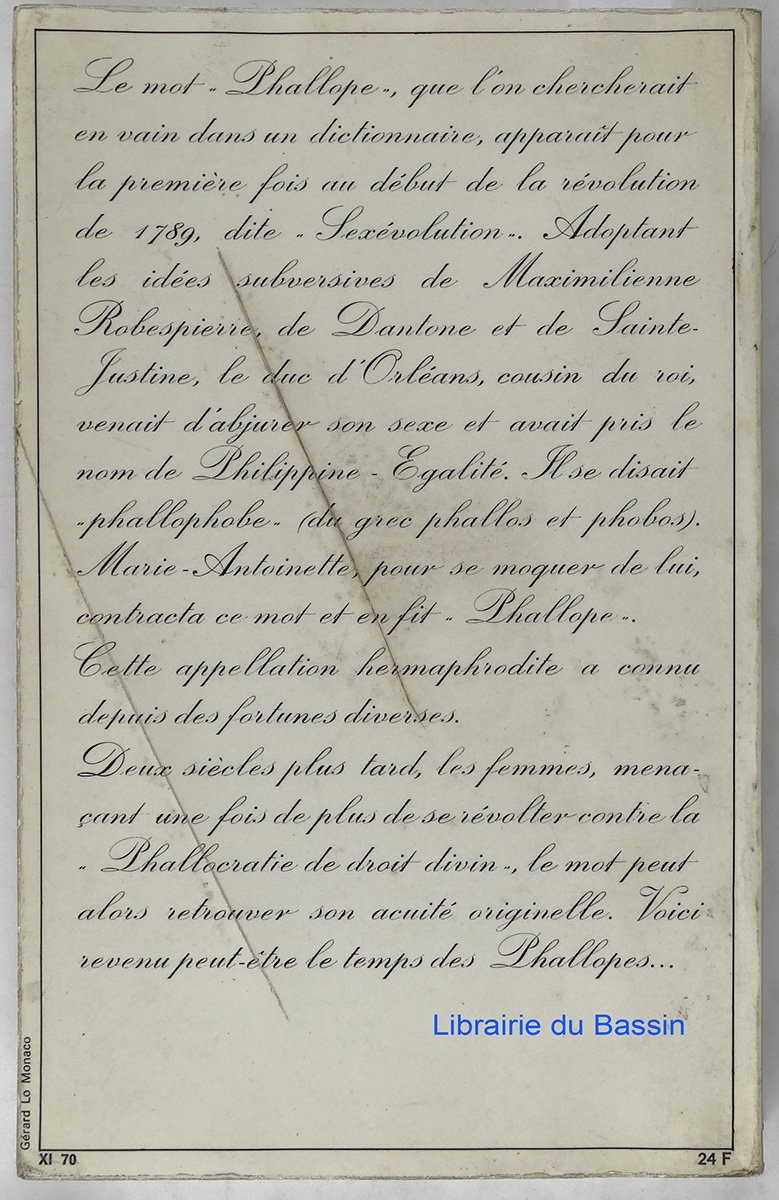 Le mot « Phallope », que l'on chercherait
en vain dans un dictionnaire, apparaît pour
la première fois au début de la révolution
de 1789, dite « Sexévolution ». Adoptant
les idées subversives de Maximilienne
Robespierre, de Dantone et de Sainte-
Justine, le duc d'Orléans, cousin du roi,
venait d'abjurer son sexe et avait pris le
nom de Philippine - Egalité. Il se disait
« phallophobe » (du grec phallos et phobos).
Marie-Antoinette, pour se moquer de lui,
contracta ce mot et en fit « Phallope ».
Cette appellation hermaphrodite a connu
depuis des fortunes diverses.
Deux siècles plus tard, les femmes, mena-
çant une fois de plus de se révolter contre la
« Phallocratie de droit divin », le mot peut
alors retrouver son acuité originelle. Voici
revenu peut-être le temps des Phallopes...
Librairie du Bassin
Gérard Lo Monaco
XI 70
24 F